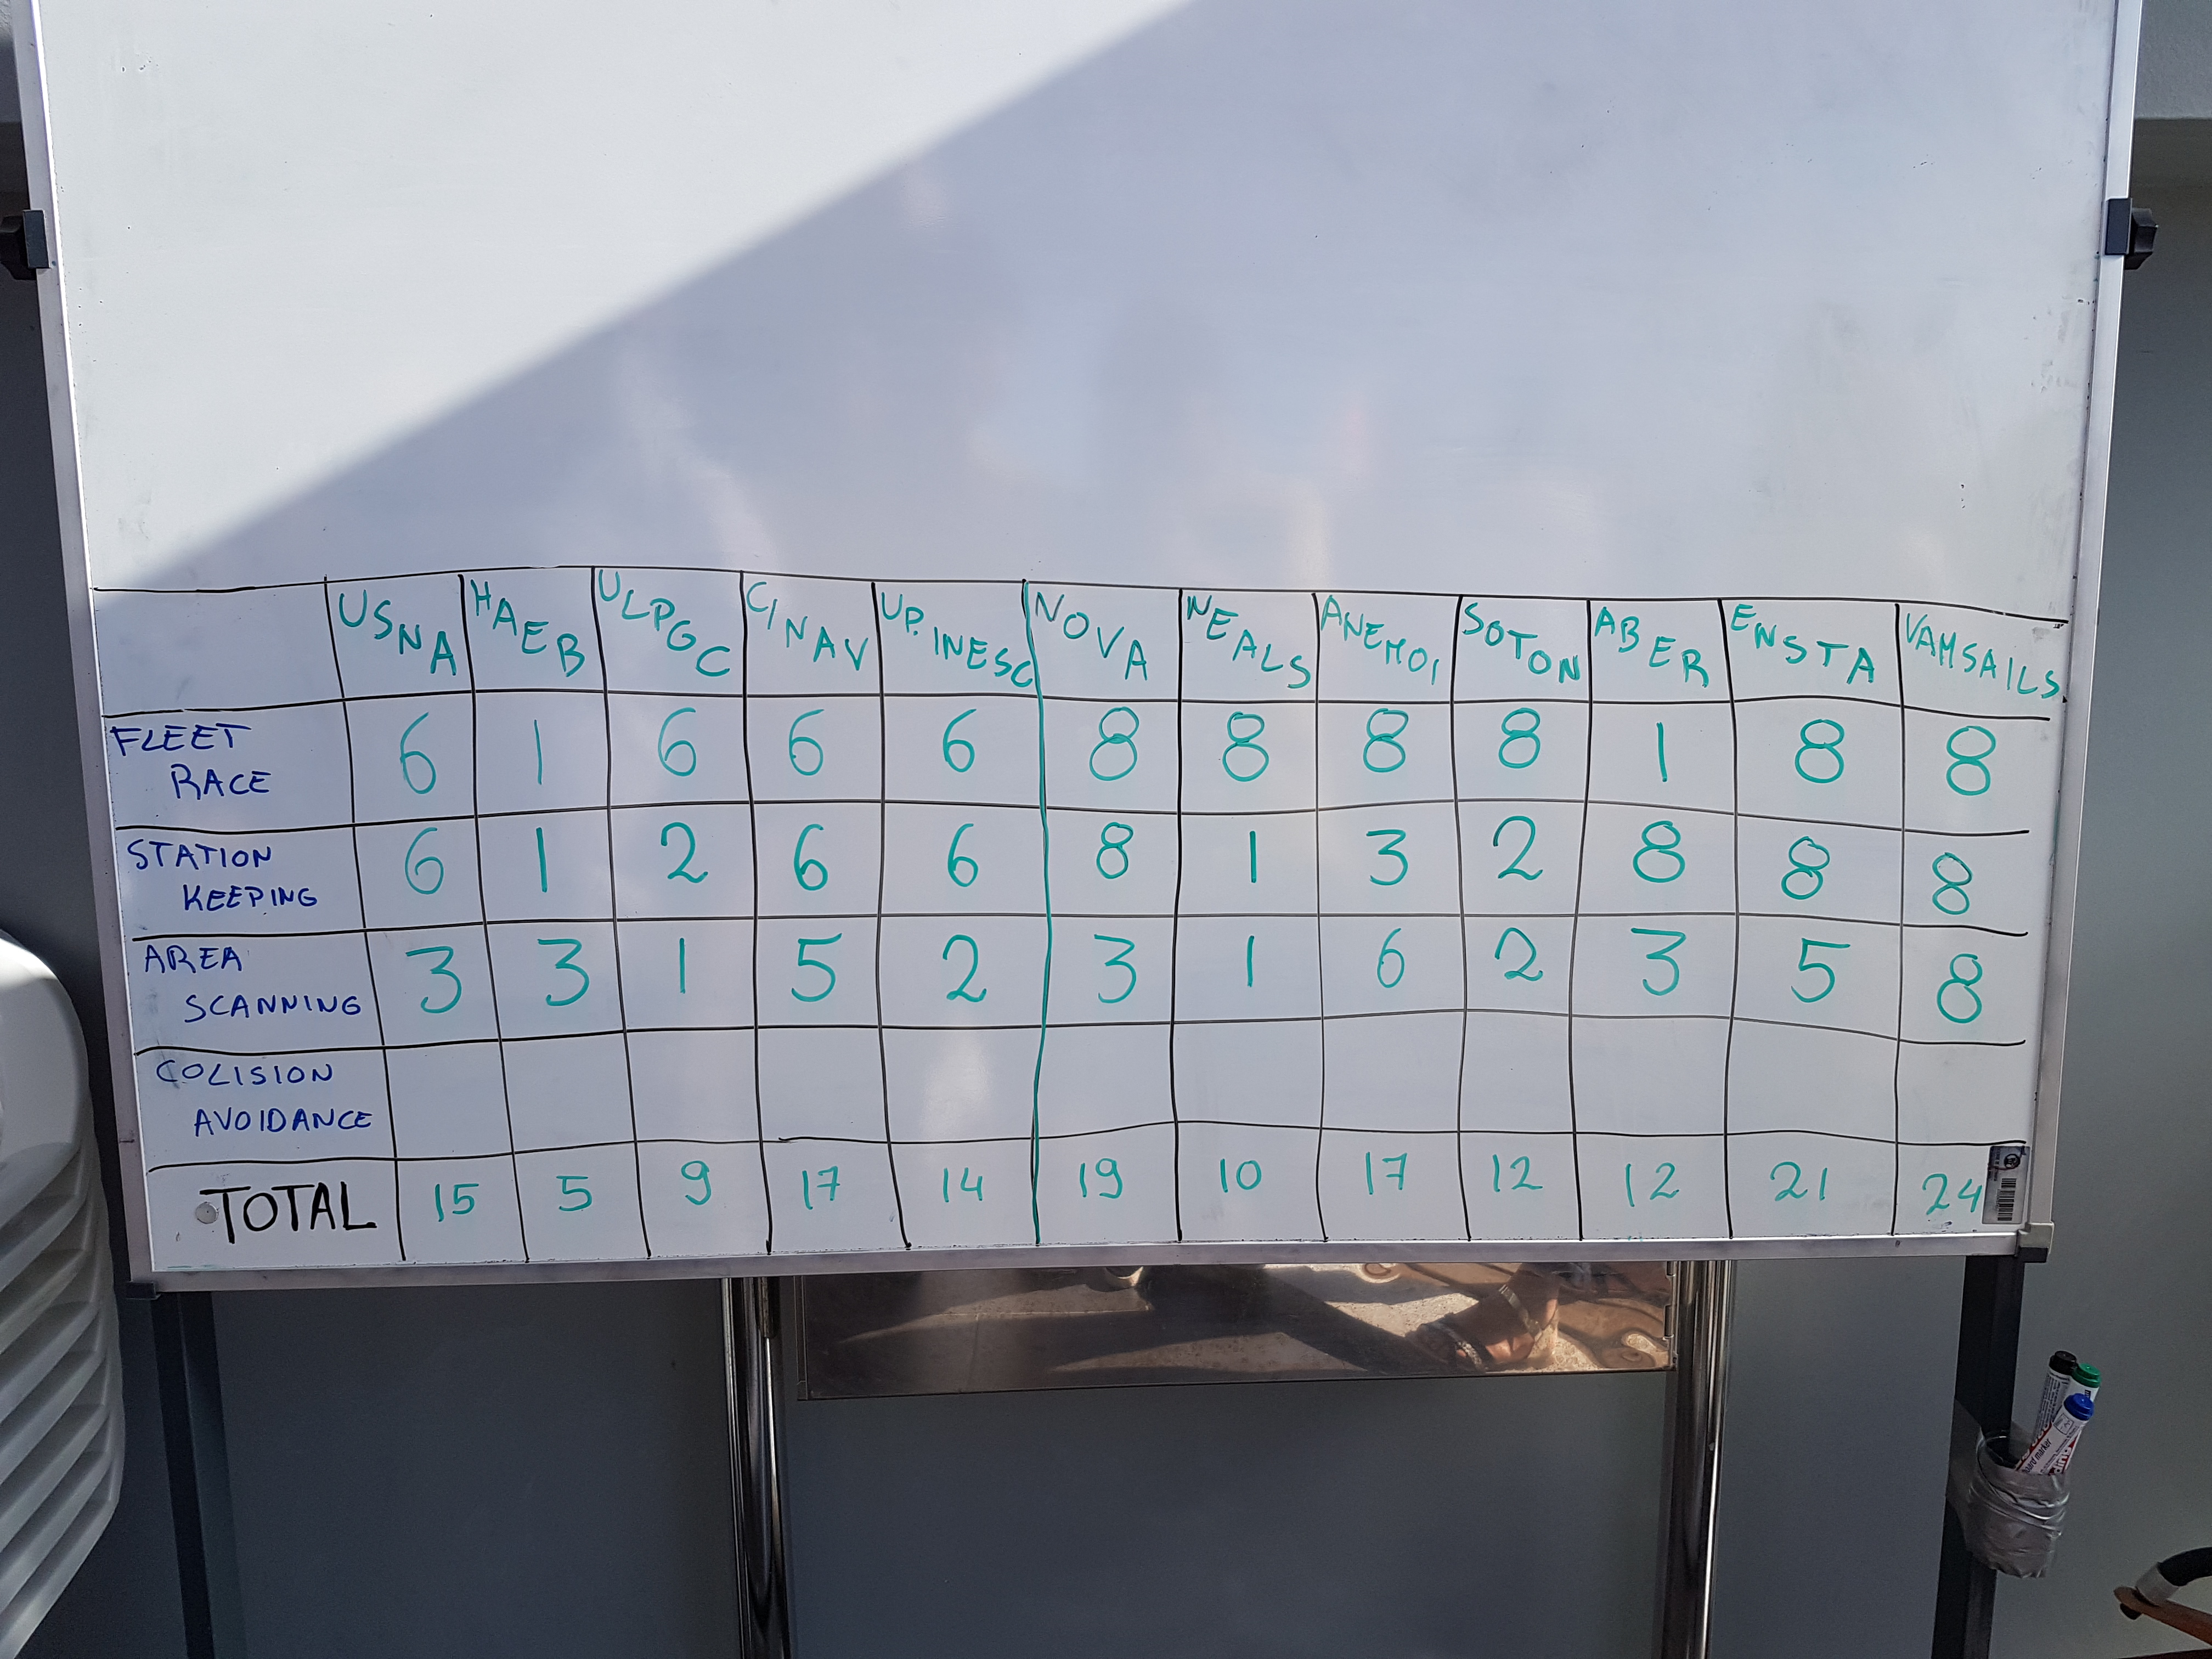 USNA HAEB ULPGC CINAV UP.INESC NOVA NEALS ANEMOI SOTON ABER ENSTA VAMSAILS
FLEET
RACE 6 1 6 6 6 8 8 8 8 1 8 8
STATION
KEEPING 6 1 2 6 6 8 1 3 2 8 8 8
AREA
SCANNING 3 3 1 5 2 3 1 6 2 3 5 8
COLISION
AVOIDANCE
TOTAL 15 5 9 17 14 19 10 17 12 12 21 24